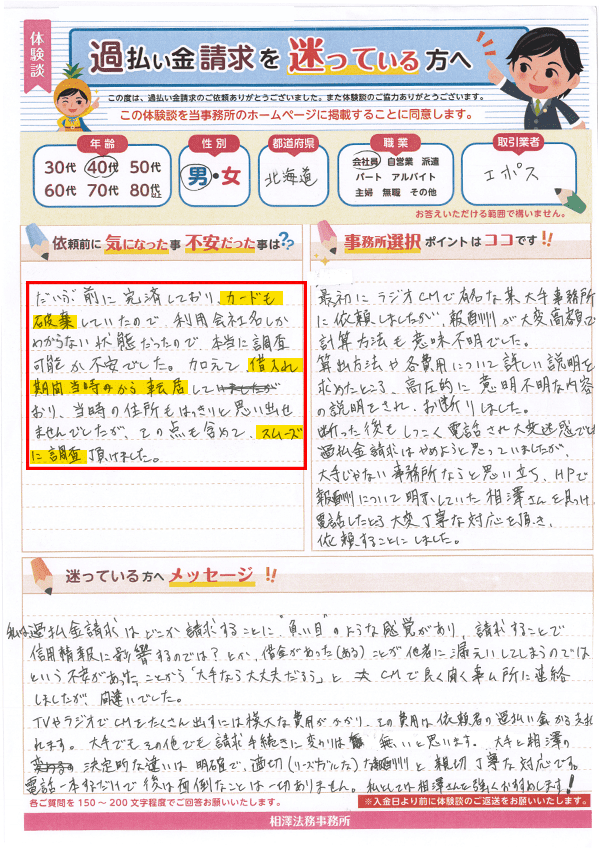 体験談
過払い金請求を迷っている方へ
この度は、過払い金請求のご依頼ありがとうございました。また体験談のご協力ありがとうございます。
この体験談を当事務所のホームページに掲載することに同意します。
年齢
30代 40代 50代
60代 70代 80代以上
性別
男・女
都道府県
北海道
職業
会社員 自営業 派遣
パート アルバイト
主婦 無職 その他
取引業者
エポス
お答えいただける範囲で構いません。
依頼前に気になった事 不安だった事は??
だいぶ前に完済しており、カードも
破棄していたので、利用会社名しか
わからない状態だったので、本当に調査
可能か不安でした。加えて、借入れ
期間当時のから転居して
おり、当時の住所もはっきりと思い出せ
ませんでしたが、その点も含めて、スムーズ
に調査頂けました。
事務所選択ポイントはココです!!
最初にラジオCMで有名な某大手事務所
に依頼しましたが、報酬が大変高額で
計算方法も意味不明でした。
算出方法や各費用について詳しい説明を
求めたところ、高圧的に意味不明な内容
の説明をされ、お断りしました。
断った後もしつこく電話され大変迷惑でした
過払金請求はやめようと思っていましたが、
大手じゃない事務所ならと思い立ち、HPで
報酬について明示していた相澤さんを見つけ
電話したところ大変丁寧な対応を頂き、
依頼することにしました。
迷っている方へメッセージ!!
私は過払金請求はどこか請求することに"負い目"のような感覚があり、請求することで
信用情報に影響するのでは?とか、借金があった(ある)ことが他者に漏えいしてしまうのでは
という不安があったことから「大手なら大丈夫だろう」と CMで良く聞く事ム所に連絡
しましたが、間違いでした。
TVやラジオでCMをたくさん出すには膨大な費用がかかり、その費用は依頼者の過払い金から支払
れます。大手でもその他でも請求手続きに変わりは無いと思います。大手と相澤の
決定的な違いは明確で、適切(リーズナブルな)な報酬と親切丁寧な対応です。
電話一本するだけで後は面倒なことは一切ありません。私としては相澤さんを強くおすすめします!
各ご質問を150～200文字程度でご回答お願いいたします。
※入金日より前に体験談のご返送をお願いいたします。
相澤法務事務所